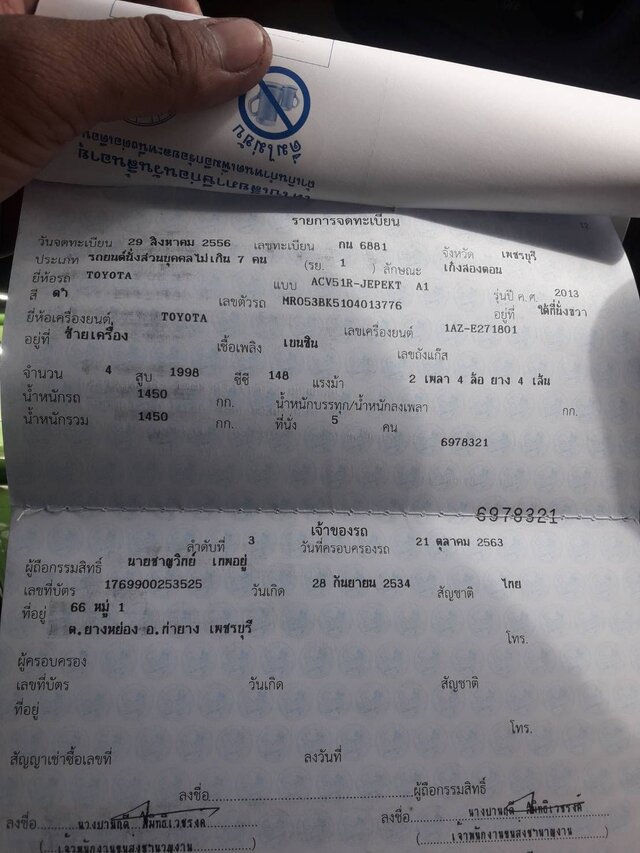 ดื่มไม่ขับ
รายการจดทะเบียน
วันจดทะเบียน 29 สิงหาคม 2556 เลขทะเบียน กน 6881 จังหวัด เพชรบุรี
ประเภท รถยนต์นั่งส่วนบุคคลไม่เกิน 7 คน (รย. 1 ) ลักษณะ เก๋งสองตอน
ยี่ห้อรถ TOYOTA แบบ ACV51R-JEPEKT A1 รุ่นปี ค.ศ. 2013
สี ดำ เลขตัวรถ MR053BK5104013776 อยู่ที่ ใต้ที่นั่งขวา
ยี่ห้อเครื่องยนต์ TOYOTA เลขเครื่องยนต์ 1AZ-E271801
อยู่ที่ ซ้ายเครื่อง เชื้อเพลิง เบนซิน เลขถังแก๊ส
จำนวน 4 สูบ 1998 ซีซี 148 แรงม้า 2 เพลา 4 ล้อ ยาง 4 เส้น
น้ำหนักรถ 1450 กก. น้ำหนักบรรทุก/น้ำหนักลงเพลา กก.
น้ำหนักรวม 1450 กก. ที่นั่ง 5 คน
6978321
6978321
เจ้าของรถ
ลำดับที่ 3 วันที่ครอบครองรถ 21 ตุลาคม 2563
ผู้ถือกรรมสิทธิ์ นายชาญวิทย์ เทพอยู่
เลขที่บัตร 1769900253525 วันเกิด 28 กันยายน 2534 สัญชาติ ไทย
ที่อยู่ 66 หมู่ 1
ต.ยางหย่อง อ.ท่ายาง เพชรบุรี โทร.
ผู้ครอบครอง
เลขที่บัตร วันเกิด สัญชาติ
ที่อยู่
โทร.
สัญญาเช่าซื้อเลขที่ ลงวันที่
ลงชื่อ ผู้ถือกรรมสิทธิ์
ลงชื่อ ลงชื่อ
(เจ้าพนักงานขนส่งชำนาญงาน (เจ้าพนักงานขนส่งชำนาญงาน